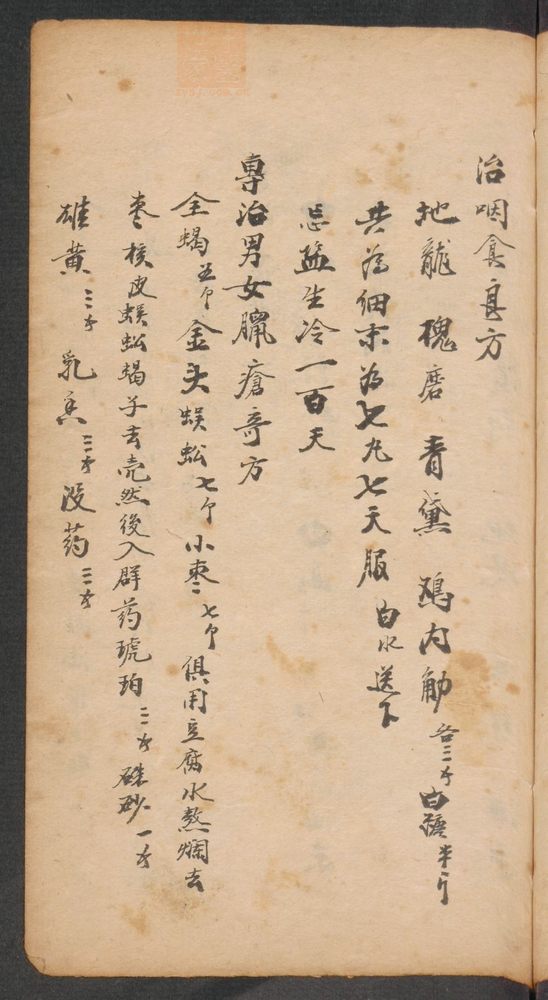 治咽食良方
地龍 槐磨 青黛 鸡内觔 各三钱 白糖半斤
共為细末為七丸七天服 白水送下
忌盐生冷一百天
專治男女臁瘡奇方
全蝎五个 金头蜈蚣七个 小枣七个 俱用豆腐水熬爛去
枣核皮蜈蚣蝎子去壳然後入群药琥珀三钱 硃砂一钱
雄黄三钱 乳香三钱 没药三钱